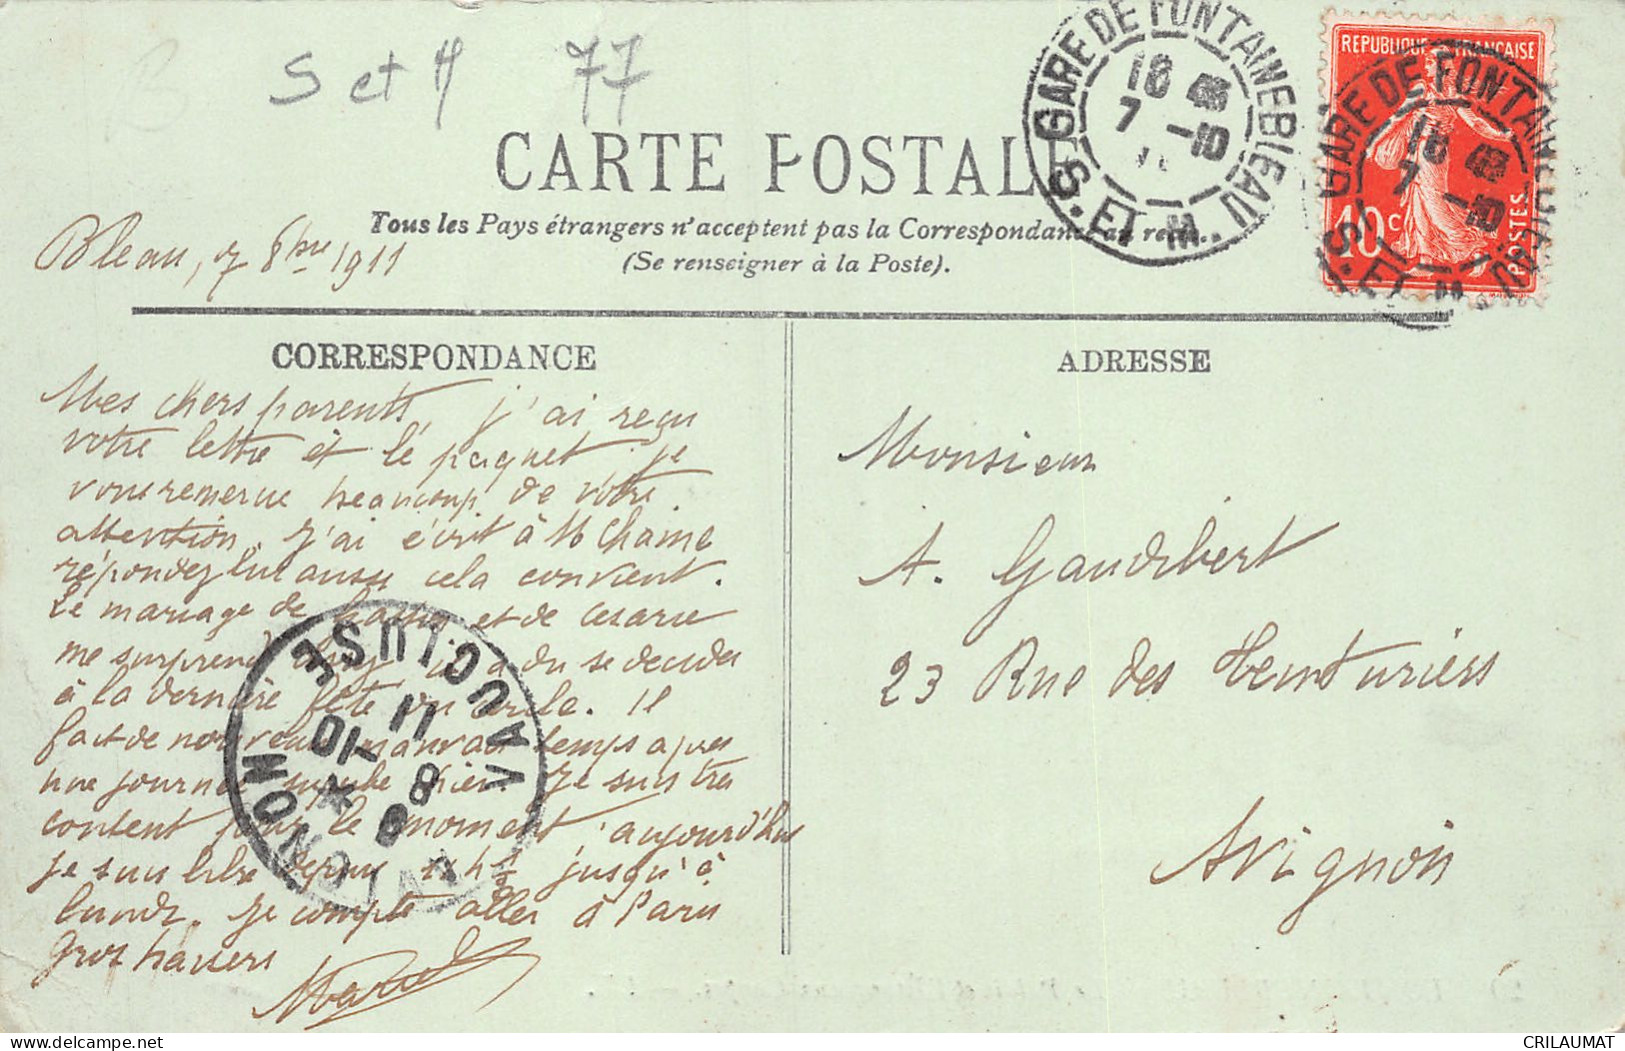 S et M 77
CARTE POSTALE
Tous les Pays étrangers n'acceptent pas la Correspondance au recto.
(Se renseigner à la Poste).
Bleau, 7 8bre 1911
GARE DE FONTAINEBLEAU
S. ET M.
18
7 -10
REPUBLIQUE FRANÇAISE
10c
POSTES
GARE DE FONTAINEBLEAU
S. ET M.
18
7 -10
CORRESPONDANCE
Mes chers parents, j'ai reçu
votre lettre et le paquet je
vous remercie beaucoup de votre
attention. J'ai écrit à M Chaine
répondez lui aussi cela convient.
Le mariage de et de Cesarie
me surprend il a du se decider
à la dernière fête du cercle. Il
fait de nouveau mauvais temps apres
une journée superbe hier. Je suis tres
content pour le moment, aujourd'hui
je suis libre depuis 11 h 1/2 jusqu'à
lundi. Je compte aller à Paris
Gros baisers
AVIGNON
VAUCLUSE
8
10
11
ADRESSE
Monsieur
A. Gaudibert
23 Rue des Teinturiers
Avignon
CRILAUMAT